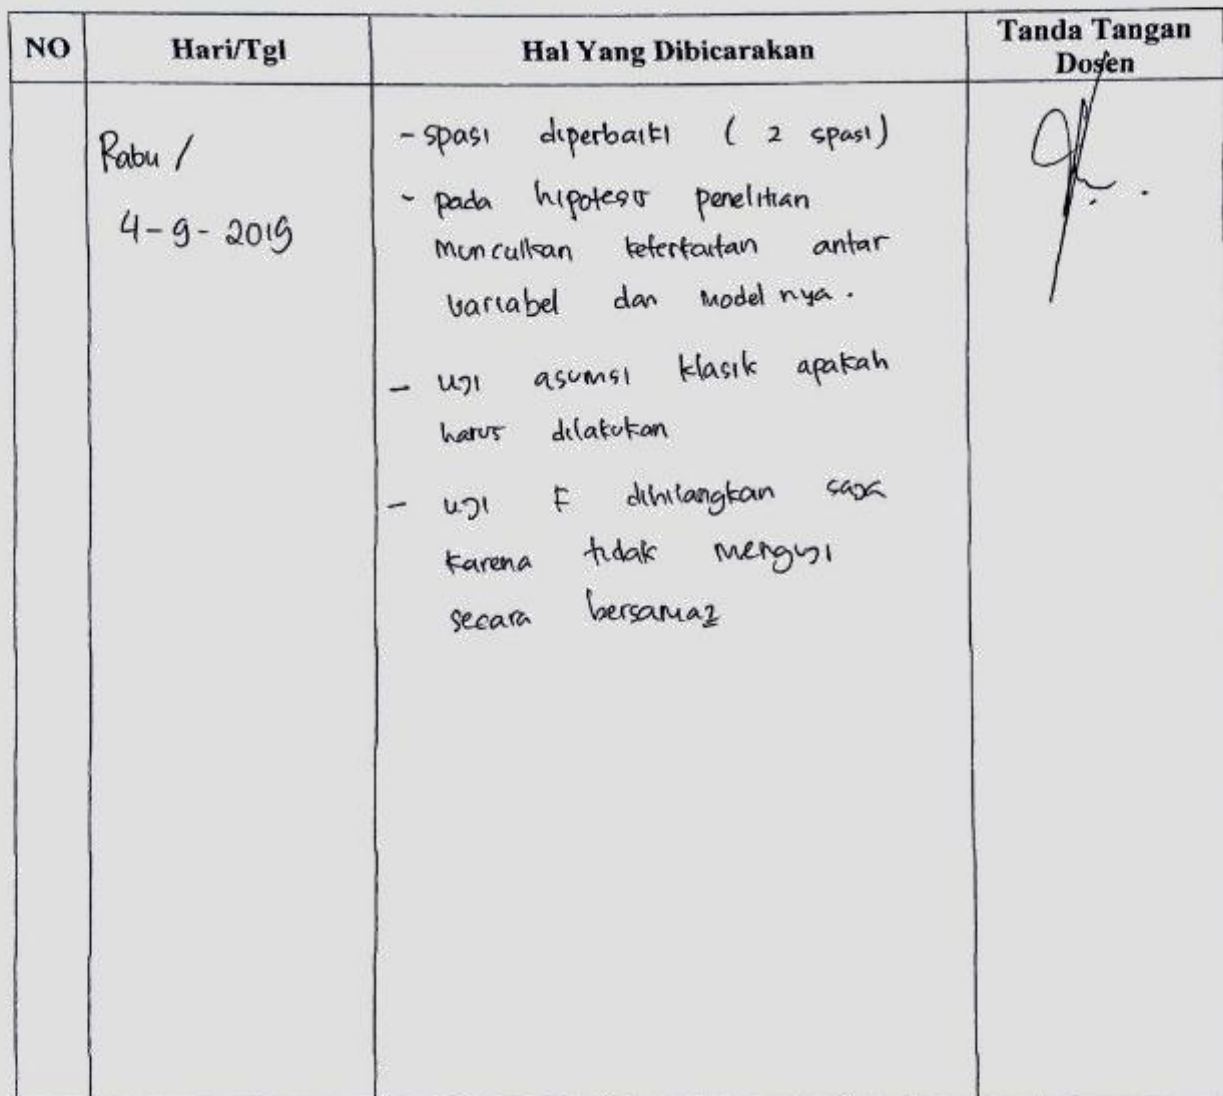 NO Hari/Tgl Hal Yang Dibicarakan Tanda Tangan
Dosen
Rabu /
4-9-2019
- spasi diperbaiki ( 2 spasi)
- pada hipotesis penelitian
munculkan keterkaitan antar
variabel dan modelnya.
- uji asumsi klasik apakah
harus dilakukan
- uji F dihilangkan saja
karena tidak menguji
secara bersama2